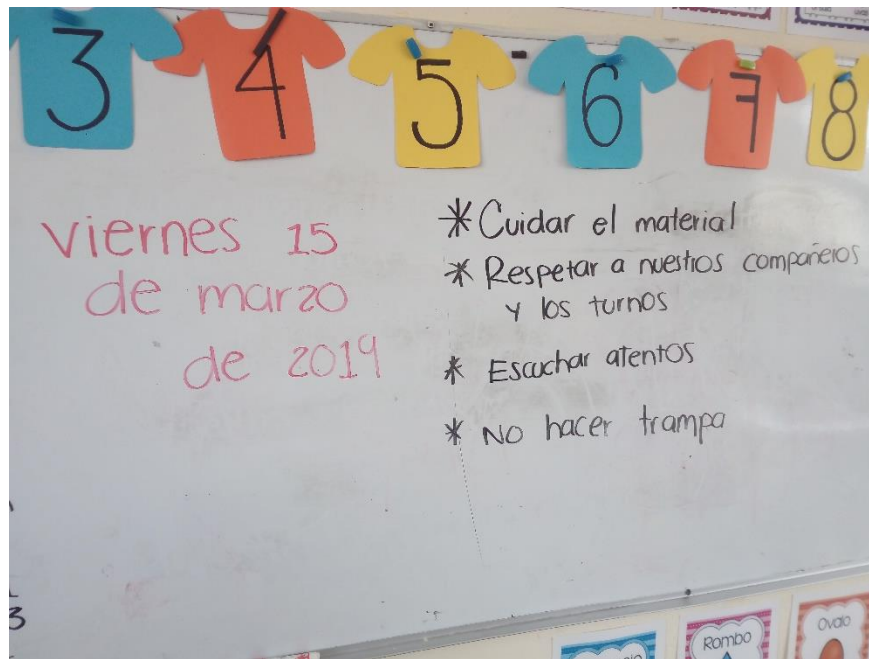 3 4 5 6 7 8
viernes 15
de marzo
de 2019
* Cuidar el material
* Respetar a nuestros compañeros
y los turnos
* Escuchar atentos
* No hacer trampa
3
Rombo
Ovalo